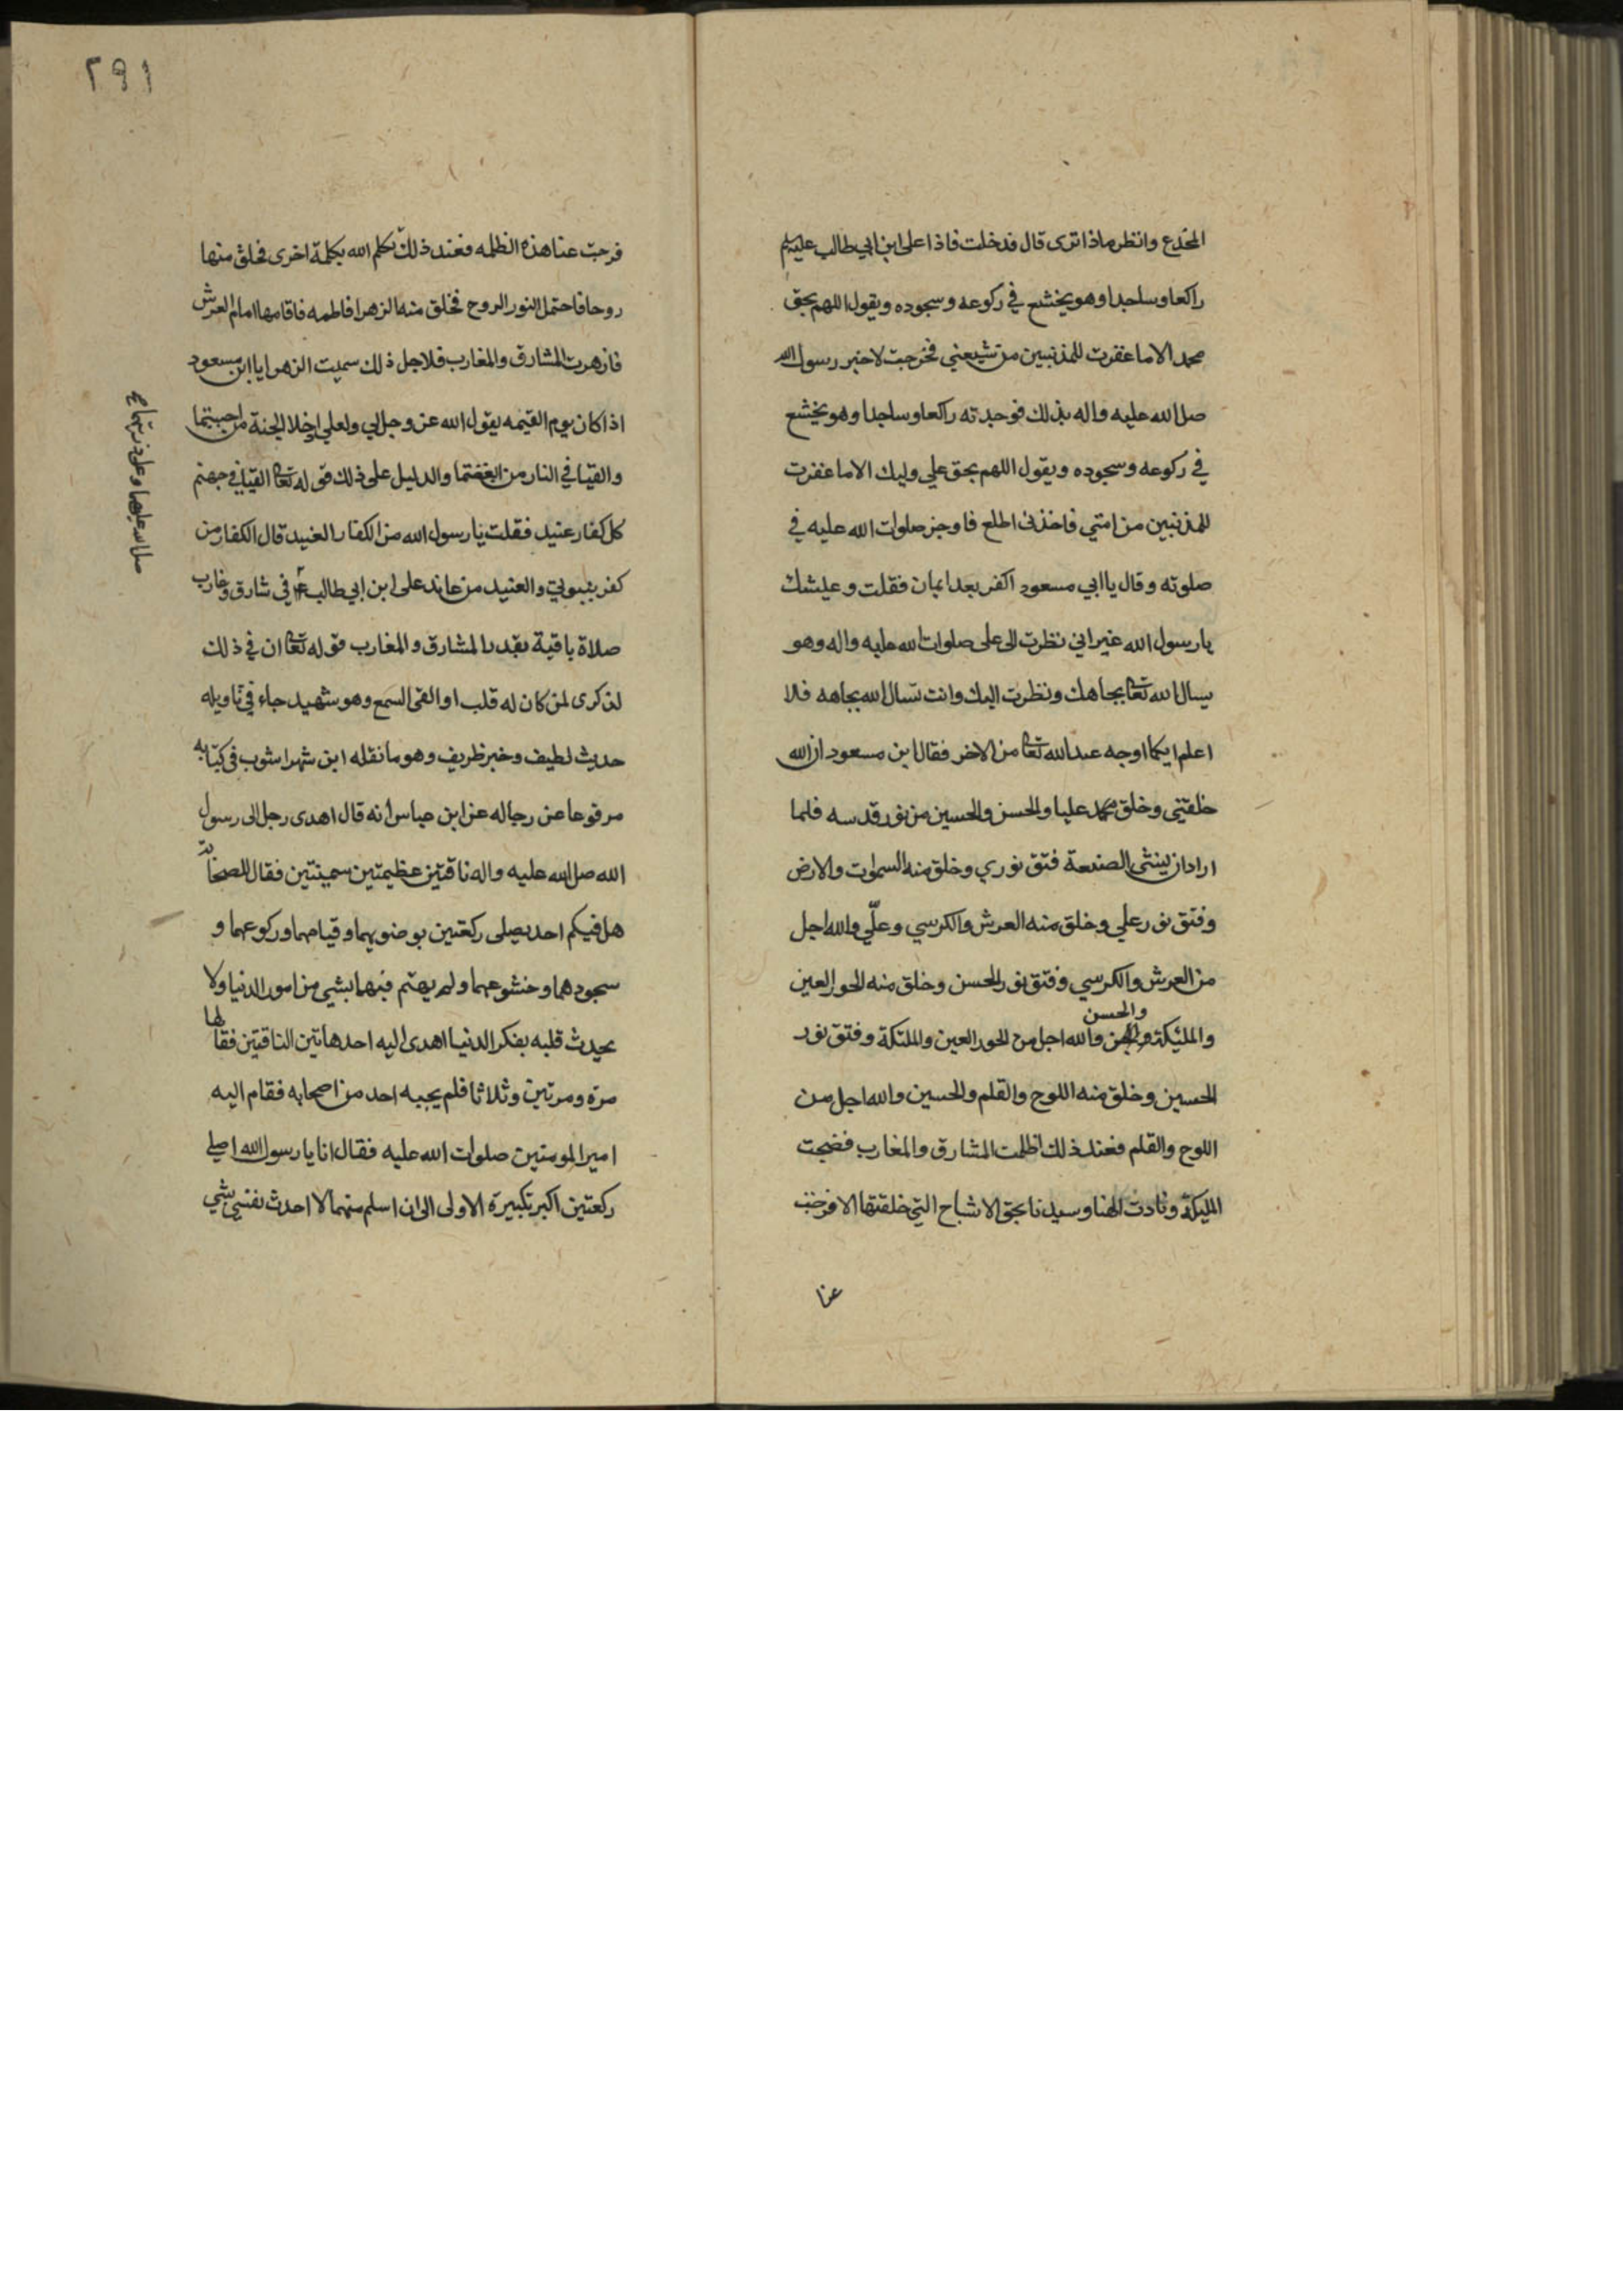 المخدع وانظر ماذا ترى قال فدخلت فاذا على ابن ابي طالب عليه السلم
راكعا وساجدا وهو يخشع في ركوعه وسجوده ويقول اللهم بحق
محمد الا ما غفرت للمذنبين من شيعتي فخرجت لاخبر رسول الله
صلى الله عليه واله بذلك فوجدته راكعا وساجدا وهو يخشع
في ركوعه وسجوده ويقول اللهم بحق علي وليك الا ما غفرت
للمذنبين من امتي فاخذني الهلع فاوجز صلوات الله عليه في
صلوته وقال يا ابي مسعود اكفر بعد ايمان فقلت وعيشك
يا رسول الله غير اني نظرت الى على صلوات الله عليه واله وهو
يسال الله تعالى بجاهك ونظرت اليك وانت تسال الله بجاهه فلا
اعلم ايكما اوجه عند الله تعالى من الاخر فقال ابن مسعود ان الله
خلقني وخلق محمد عليا والحسن والحسين من نور قدسه فلما
اراد ان ينشى الصنعة فتق نوري وخلق منه السموات والارض
وفتق نور علي وخلق منه العرش والكرسي وعلّي والله اجل
من العرش والكرسي وفتق نور الحسن وخلق منه الحور العين
والحسن
والمليكة والله اجل من الحور العين والمليكة وفتق نور
الحسين وخلق منه اللوح والقلم والحسين والله اجل من
اللوح والقلم فعند ذلك اظلمت المشارق والمغارب فضجت
المليكة ونادت الهنا وسيدنا بحق الاشباح التي خلقتها الا فرجت
عنا
٢٩١
فرجت عنا هذه الظلمه فعند ذلك تكلم الله بكلمة اخرى فخلق منها
روحا فاحتمل النور الروح فخلق منه الزهرا فاطمه فاقامها امام العرش
فازهرت المشارق والمغارب فلاجل ذلك سميت الزهرا يا ابن مسعود
اذا كان يوم القيمه يقول الله عز وجل لي ولعلي ادخلا الجنة من احببتما
والقيا في النار من ابغضتما والدليل على ذلك قوله تعالى القيا في جهنم
كل كفار عنيد فقلت يا رسول الله من الكفار العنيد قال الكفار من
كفر بنبوتي والعنيد من عاند على ابن ابي طالب ع في شارق وغارب
صلاة باقية بقدر المشارق والمغارب قوله تعالى ان في ذلك
لذكرى لمن كان له قلب او القى السمع وهو شهيد جاء في تاويله
حديث لطيف وخبر ظريف وهو ما نقله ابن شهراشوب في كتابه
مرفوعا عن رجاله عن ابن عباس انه قال اهدى رجل الى رسول
الله صلى الله عليه واله ناقتين عظيمتين سمينتين فقال للصحابة
هل فيكم احد يصلى ركعتين بوضويهما وقيامهما وركوعهما و
سجودهما وخشوعهما ولم يهتم فيهما بشي من امور الدنيا ولا
يحدث قلبه بفكر الدنيا اهدى اليه احد هاتين الناقتين فقالها
مرة ومرتين وثلاثا فلم يجبه احد من اصحابه فقام اليه
امير المومنين صلوات الله عليه فقال انا يا رسول الله اصلي
ركعتين اكبر تكبيرة الاولى الى ان اسلم منهما لا احدث نفسي بشي
صلى الله عليهما وعلى ذريتهما